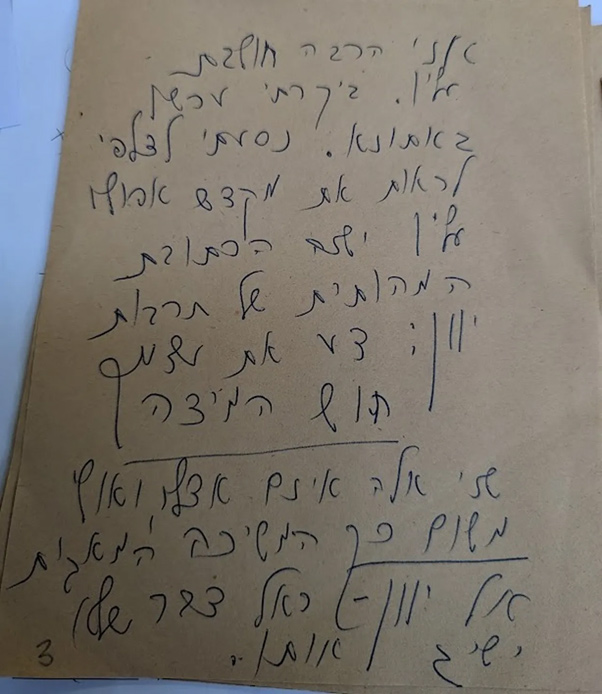 אני הרבה חושבת
על יוון. ביקרתי עכשיו
באתונא. נסעתי לדלפי
לראות את מקדש אפולו
עליו ישנה הכתובת
המהותית של תרבות
יוון: דע את עצמך
חוש המידה
שני אלה אינם אצלו ואולי
משום כך המשיכה המאגית
אל יוון - כאל דבר שלא
ישיג אותו..
3